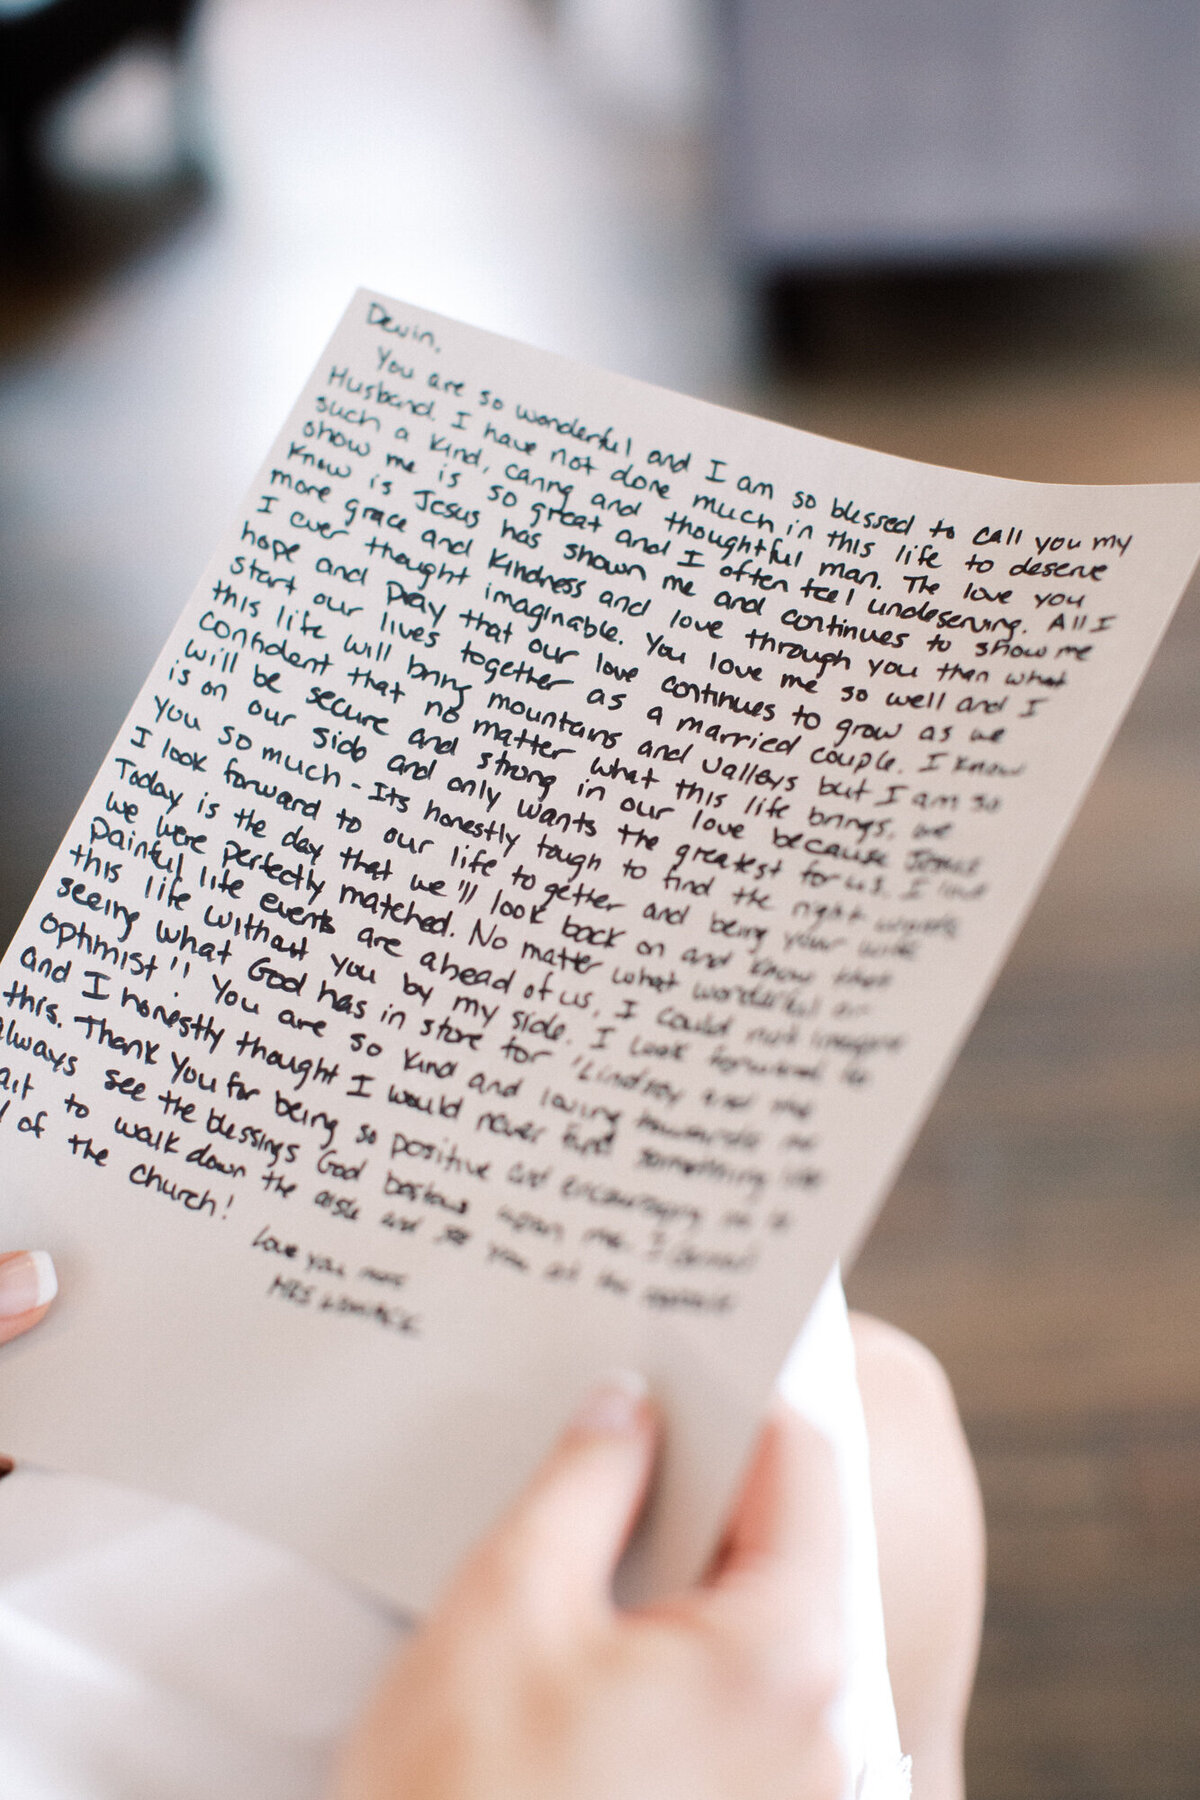 Devin,
You are so wonderful and I am so blessed to call you my
Husband. I have not done much in this life to deserve
such a kind, caring and thoughtful man. The love you
show me is so great and I often feel undeserving. All I
know is Jesus has shown me and continues to show me
more grace and kindness and love through you than what
I ever thought imaginable. You love me so well and I
hope and pray that our love continues to grow as we
start our lives together as a married couple. I know
this life will bring mountains and valleys but I am so
confident that no matter what this life brings, we
will be secure and strong in our love because Jesus
is on our side and only wants the greatest for us. I love
you so much - Its honestly tough to find the right words
I look forward to our life together and being your wife
Today is the day that we'll look back on and know that
we were perfectly matched. No matter what wonderful or
painful life events are ahead of us, I could not imagine
this life without you by my side. I look forward to
seeing what God has in store for "Lindsay and the
optimist"! You are so kind and loving towards me
and I honestly thought I would never find something like
this. Thank you for being so positive and encouraging
always see the blessings God bestows upon me. I
ait to walk down the aisle and see you at the
of the church!
Love you more
MRS